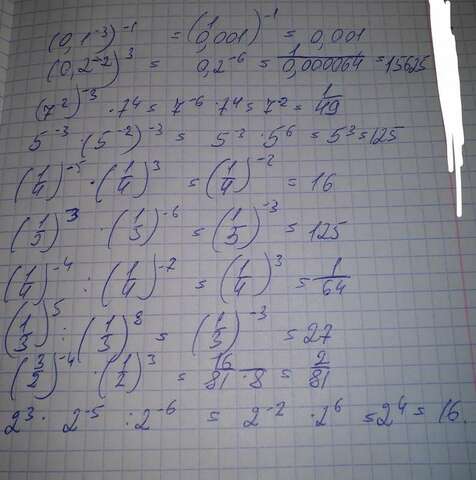 (0,1⁻³)⁻¹ = (1/0,001)⁻¹ = 0,001
(0,2⁻²)³ = 0,2⁻⁶ = 1/0,000064 = 15625
(7²)⁻³ · 7⁴ = 7⁻⁶ · 7⁴ = 7⁻² = 1/49
5⁻³ · (5⁻²)⁻³ = 5⁻³ · 5⁶ = 5³ = 125
(1/4)⁻⁵ · (1/4)³ = (1/4)⁻² = 16
(1/5)³ · (1/5)⁻⁶ = (1/5)⁻³ = 125
(1/4)⁻⁴ : (1/4)⁻⁷ = (1/4)³ = 1/64
(1/3)⁵ : (1/3)⁸ = (1/3)⁻³ = 27
(3/2)⁻⁴ · (1/2)³ = 16/81 · 8 = 2/81
2³ · 2⁻⁵ : 2⁻⁶ = 2⁻² · 2⁶ = 2⁴ = 16